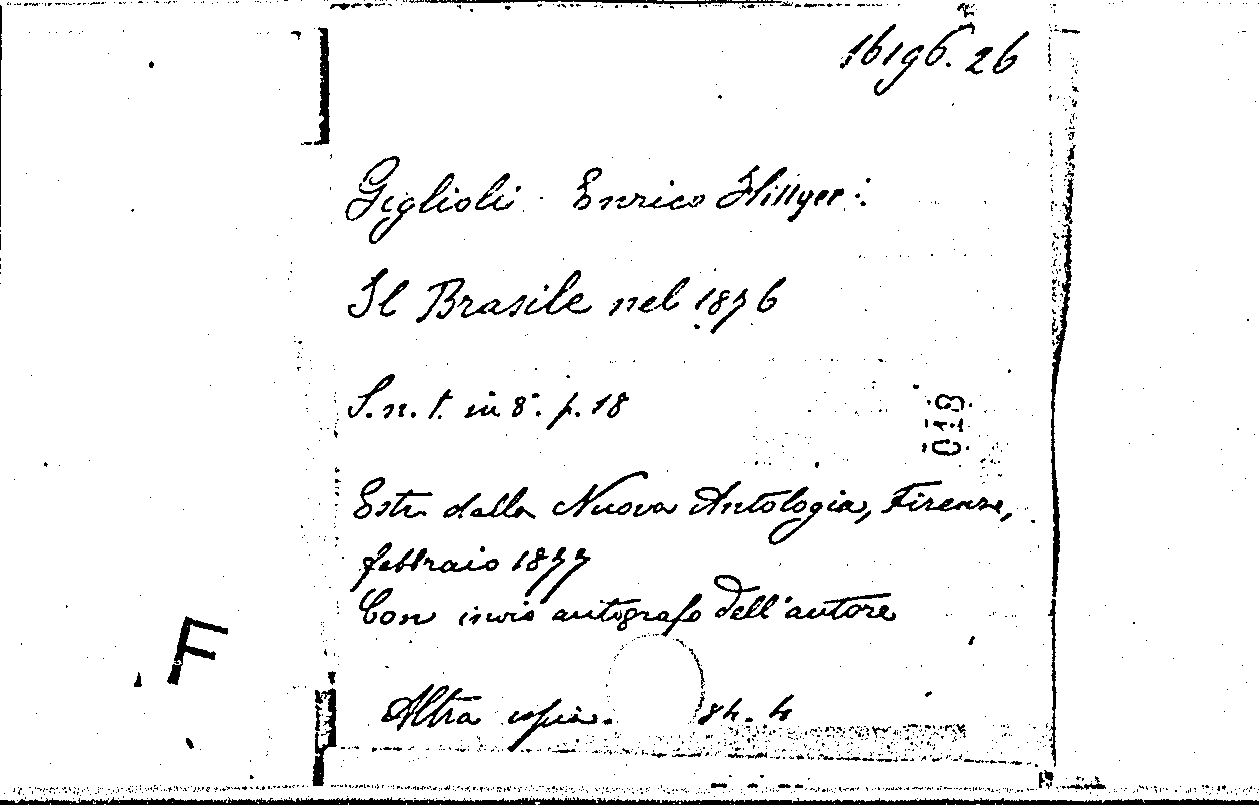 16196.26
Giglioli Enrico Hillyer:
Il Brasile nel 1876
S.n.t. in 8°. p. 18
018
Estr. dalla Nuova Antologia, Firenze,
febbraio 1877
Con invio autografo dell'autore
F
Altra copia. 84.4